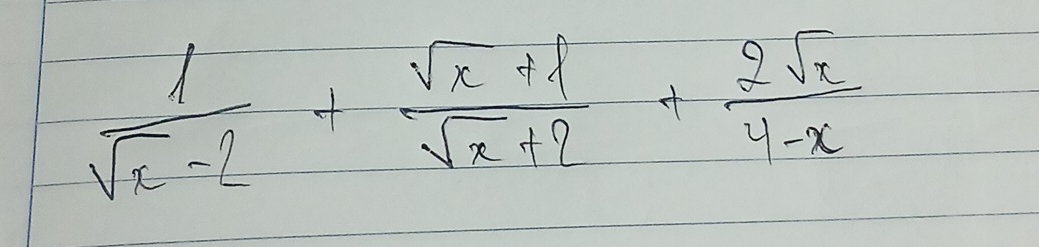 1/(√x - 2) + (√x + 1)/(√x + 2) + 2√x/(4 - x)